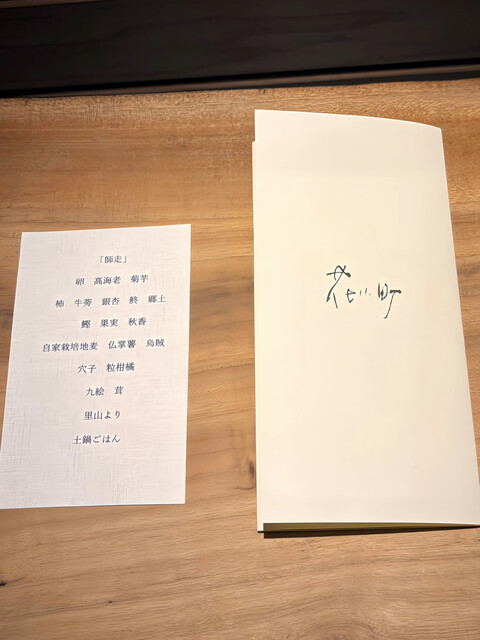 「師走」
卵　髙海老　菊芋
柿　牛蒡　銀杏　鮗　郷土
鰹　果実　秋香
自家栽培地麦　仏掌薯　烏賊
穴子　粒柑橘
九絵　茸
里山より
土鍋ごはん